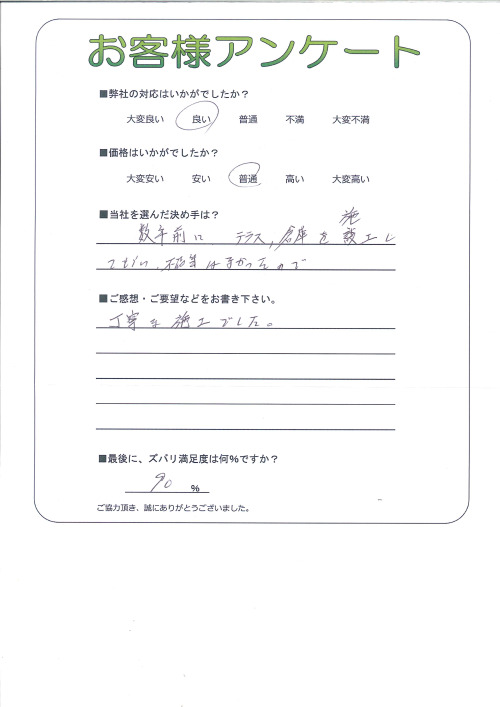 お客様アンケート
■弊社の対応はいかがでしたか？
大変良い 良い 普通 不満 大変不満
■価格はいかがでしたか？
大変安い 安い 普通 高い 大変高い
■当社を選んだ決め手は？
施
数年前に、テラス,倉庫を 工し
てもらい、 はなかったので
■ご感想・ご要望などをお書き下さい。
丁寧な施工でした。
■最後に、ズバリ満足度は何%ですか？
90 %
ご協力頂き、誠にありがとうございました。